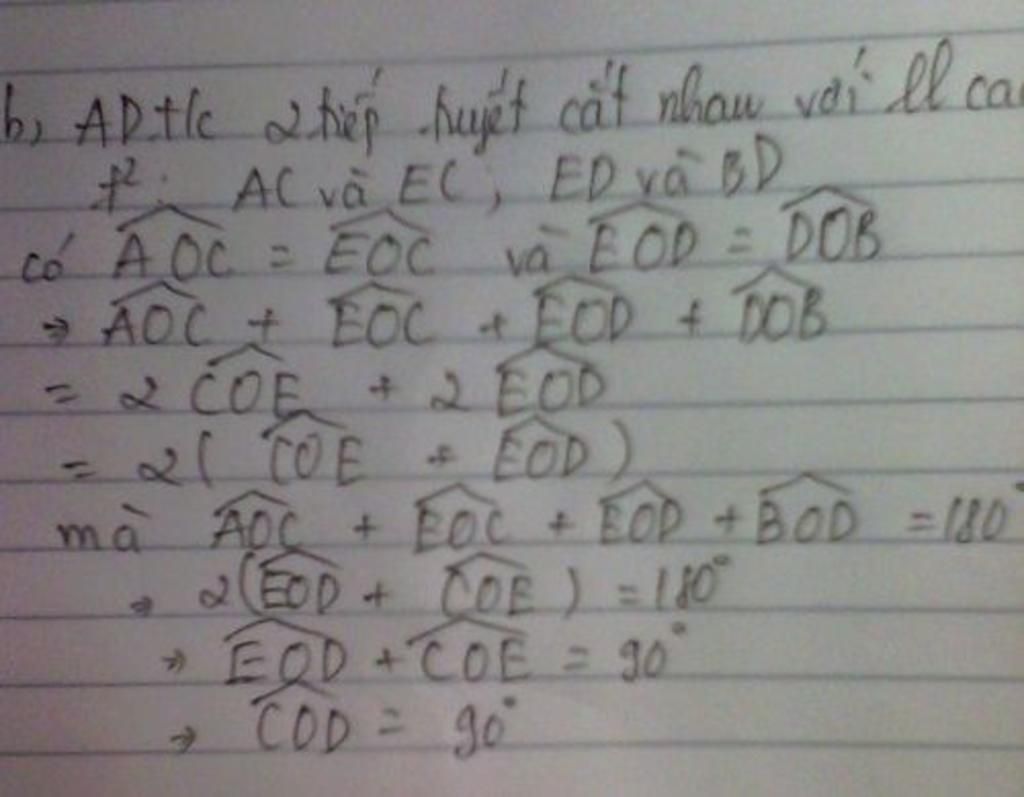 b, AD t/c 2 tiếp tuyết cắt nhau với ll cá
t²: AC và EC, ED và BD
có AOC = EOC và EOD = DOB
→ AOC + EOC + EOD + DOB
= 2 COE + 2 EOD
= 2( COE + EOD )
mà AOC + EOC + EOD + BOD = 180°
→ 2(EOD + COE ) = 180°
→ EOD + COE = 90°
→ COD = 90°